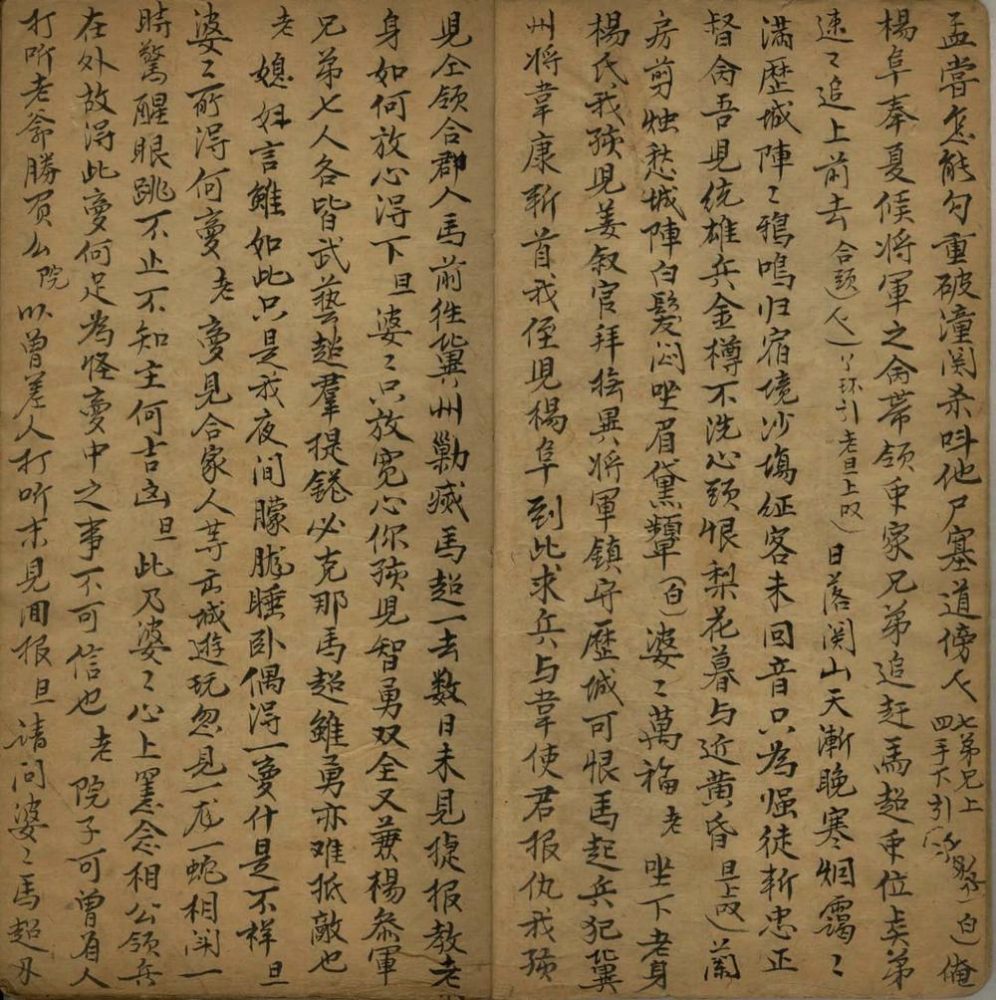 孟嘗怎能勾重破潼関杀呌他尸塞道傍人 七弟兄上 四手下引 白 俺
楊阜奉夏候将軍之命帶領重家兄弟追赶馬超重位矣弟
速〻追上前去 合頭人 丫环引老旦上 日落関山天漸晚寒烟靄〻
满歷城陣〻鴉鳴归宿境沙塲征客未回音只為倔徒斬忠正
督命吾児统雄兵金樽不洗心頭恨梨花暮与近黄昏 旦上 蘭
房剪烛愁城陣白髪闷坐眉黛颦 白 婆〻萬福 老 坐下老身
楊氏我孩児姜叙官拜撫異将軍鎮守歷城可恨馬起兵犯冀
州将韋康斬首我侄児楊阜到此求兵与韋使君报仇我孩
見仝领合郡人馬前徃冀州勦滅馬超一去数日未見捷报教老
身如何放心得下 旦 婆〻只放宽心你孩児智勇双全又兼楊叅軍
兄弟七人各皆武藝超羣提鎗必克那馬超雖勇亦难抵敵也
老 媳妇言雖如此只是我夜间朦胧睡卧偶得一夣什是不祥 旦
婆〻所得何夣 老 夣見合家人等出城遊玩忽見一龙一蛇相鬦一
時驚醒眼跳不止不知主何吉凶 旦 此乃婆〻心上罣念相公領兵
在外故得此夣何足為怪夣中之事不可信也 老 院子可曾有人
打听老爺勝負么 院 以曾差人打听未見囬报 旦 請问婆〻馬超丹